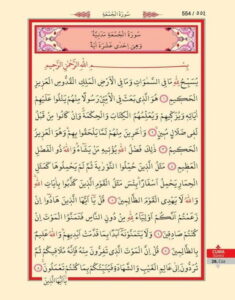 554 / ٥٥٤
سُورَةُ الْجُمُعَةِ
سُورَةُ الْجُمُعَةِ مَدَنِيَّةٌ
وَهِيَ اِحْدٰى عَشْرَةَ اٰيَةً
بِسْمِ اللّٰهِ الرَّحْمٰنِ الرَّحِيمِ
يُسَبِّحُ لِلّٰهِ مَا فِي السَّمٰوَاتِ وَمَا فِي الْاَرْضِ الْمَلِكِ الْقُدُّوسِ الْعَزِيزِ
الْحَكِيمِ ١ هُوَ الَّذِي بَعَثَ فِي الْاُمِّيِّنَ رَسُولًا مِنْهُمْ يَتْلُوا عَلَيْهِمْ
اٰيَاتِهِ وَيُزَكِّيهِمْ وَيُعَلِّمُهُمُ الْكِتَابَ وَالْحِكْمَةَ وَاِنْ كَانُوا مِنْ قَبْلُ
لَفِي ضَلَالٍ مُبِينٍ ٢ وَاٰخَرِينَ مِنْهُمْ لَمَّا يَلْحَقُوا بِهِمْ وَهُوَ الْعَزِيزُ
الْحَكِيمُ ٣ ذٰلِكَ فَضْلُ اللّٰهِ يُؤْتِيهِ مَنْ يَشَاءُ وَاللّٰهُ ذُو الْفَضْلِ
الْعَظِيمِ ٤ مَثَلُ الَّذِينَ حُمِّلُوا التَّوْرٰيةَ ثُمَّ لَمْ يَحْمِلُوهَا كَمَثَلِ
الْحِمَارِ يَحْمِلُ اَسْفَارًا بِئْسَ مَثَلُ الْقَوْمِ الَّذِينَ كَذَّبُوا بِاٰيَاتِ اللّٰهِ
وَاللّٰهُ لَا يَهْدِي الْقَوْمَ الظَّالِمِينَ ٥ قُلْ يَا اَيُّهَا الَّذِينَ هَادُوا اِنْ
زَعَمْتُمْ اَنَّكُمْ اَوْلِيَاءُ لِلّٰهِ مِنْ دُونِ النَّاسِ فَتَمَنَّوُا الْمَوْتَ اِنْ
كُنْتُمْ صَادِقِينَ ٦ وَلَا يَتَمَنَّوْنَهُ اَبَدًا بِمَا قَدَّمَتْ اَيْدِيهِمْ وَاللّٰهُ عَلِيمٌ
بِالظَّالِمِينَ ٧ قُلْ اِنَّ الْمَوْتَ الَّذِي تَفِرُّونَ مِنْهُ فَاِنَّهُ مُلَاقِيكُمْ ثُمَّ
تُرَدُّونَ اِلٰى عَالِمِ الْغَيْبِ وَالشَّهَادَةِ فَيُنَبِّئُكُمْ بِمَا كُنْتُمْ تَعْمَلُونَ ٨
يَا اَيُّهَا الَّذِينَ